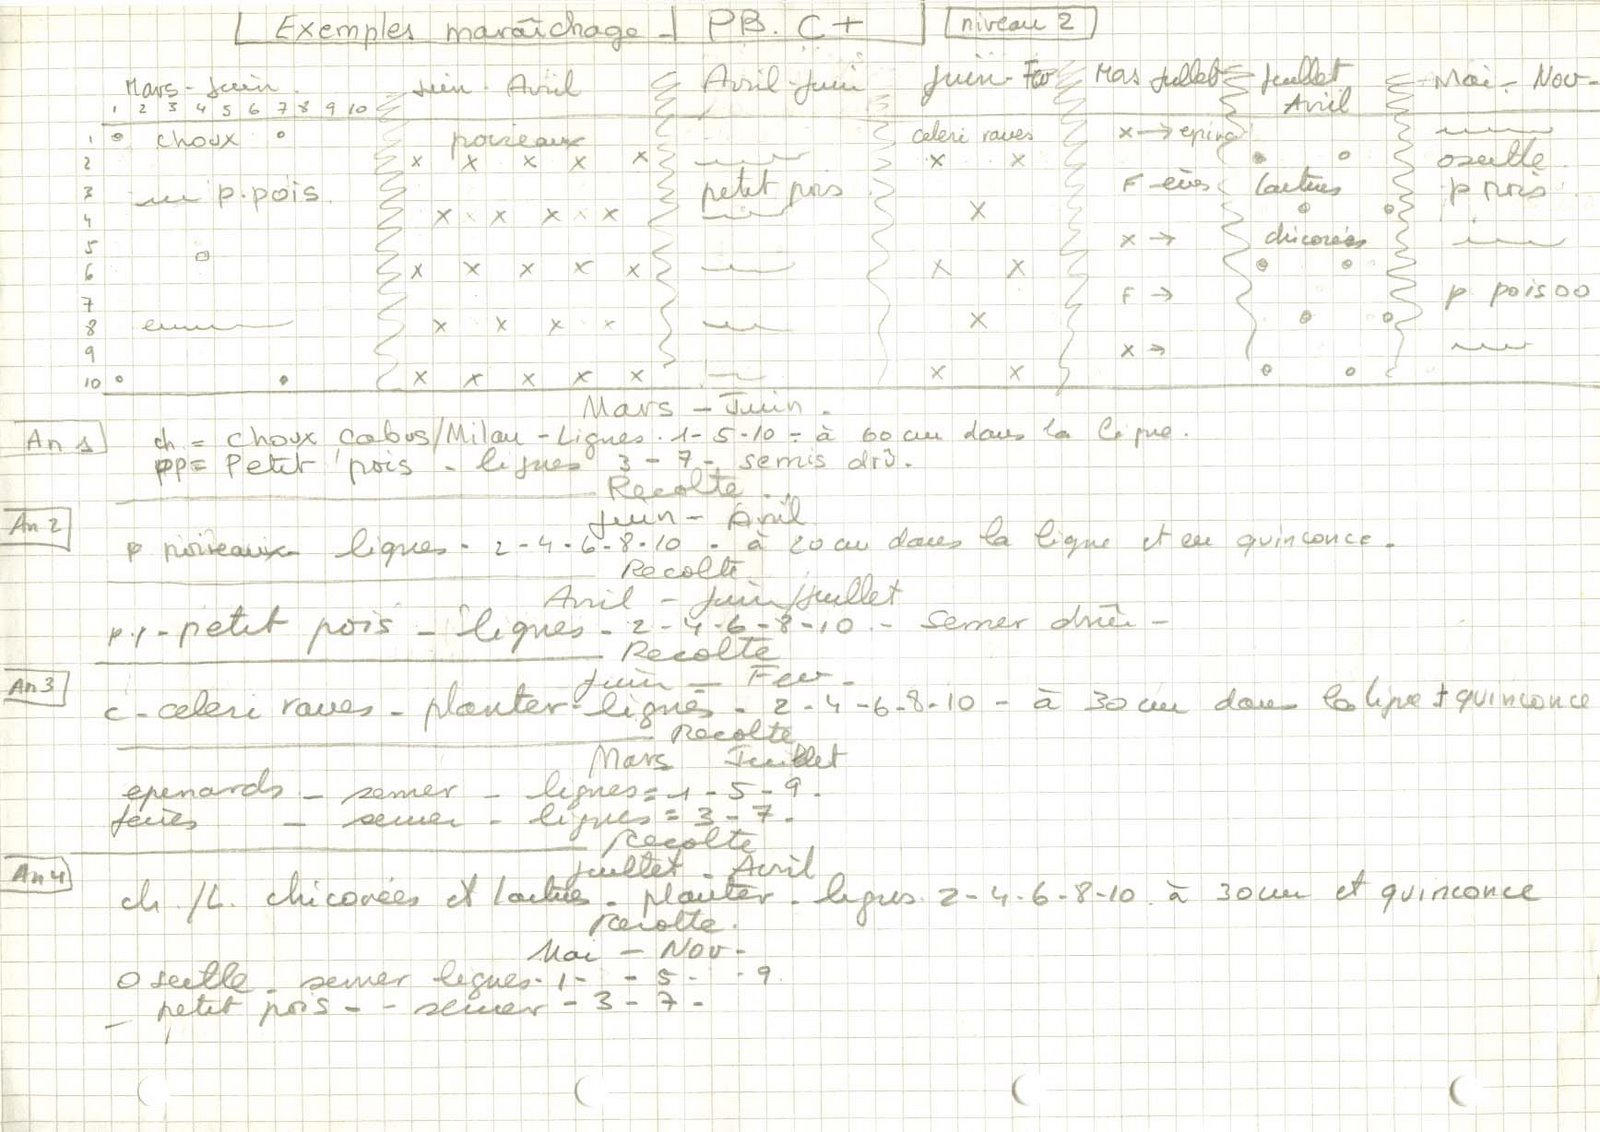 Exemples maraîchage - PB. C+ niveau 2
Mars-Juin Juin-Avril Avril-Juin Juin-Fev Mas Juillet Juillet Avril Mai-Nov-
1 2 3 4 5 6 7 8 9 10
1 choux poireaux celeri raves x → epina
2 x x x x x x x oseille
3 p.pois petit pois F-eves laitues p pois
4 x x x x x
5 x → chicorées
6 x x x x x x x
7 F → p pois
8 x x x x x
9 x →
10 x x x x x x x
Mars - Juin -
An 1 ch. = choux cabus/Milan - Lignes. 1-5-10 = à 60 cm dans la ligne.
pp = Petit pois - lignes 3-7- semis drû.
Recolte
An 2 Juin - Avril
p poireaux lignes - 2-4-6-8-10 - à 20 cm dans la ligne et en quinconce -
Recolte
Avril - Juin/Juillet
p.p - petit pois - lignes - 2-4-6-8-10 - semer drûe -
Recolte
An 3 Juin - Fev -
c - celeri raves - planter - lignes - 2-4-6-8-10 - à 30 cm dans la ligne + quinconce
Recolte
Mars Juillet
epenards - semer - lignes = 1-5-9.
feves - semer - lignes = 3-7-
Recolte
An 4 Juillet - Avril
ch./L. chicorées et laitues - planter - lignes 2-4-6-8-10 à 30 cm et quinconce
Recolte.
Mai - Nov -
Oseille - semer lignes - 1 - - 5 - - 9
petit pois - - semer - 3-7-